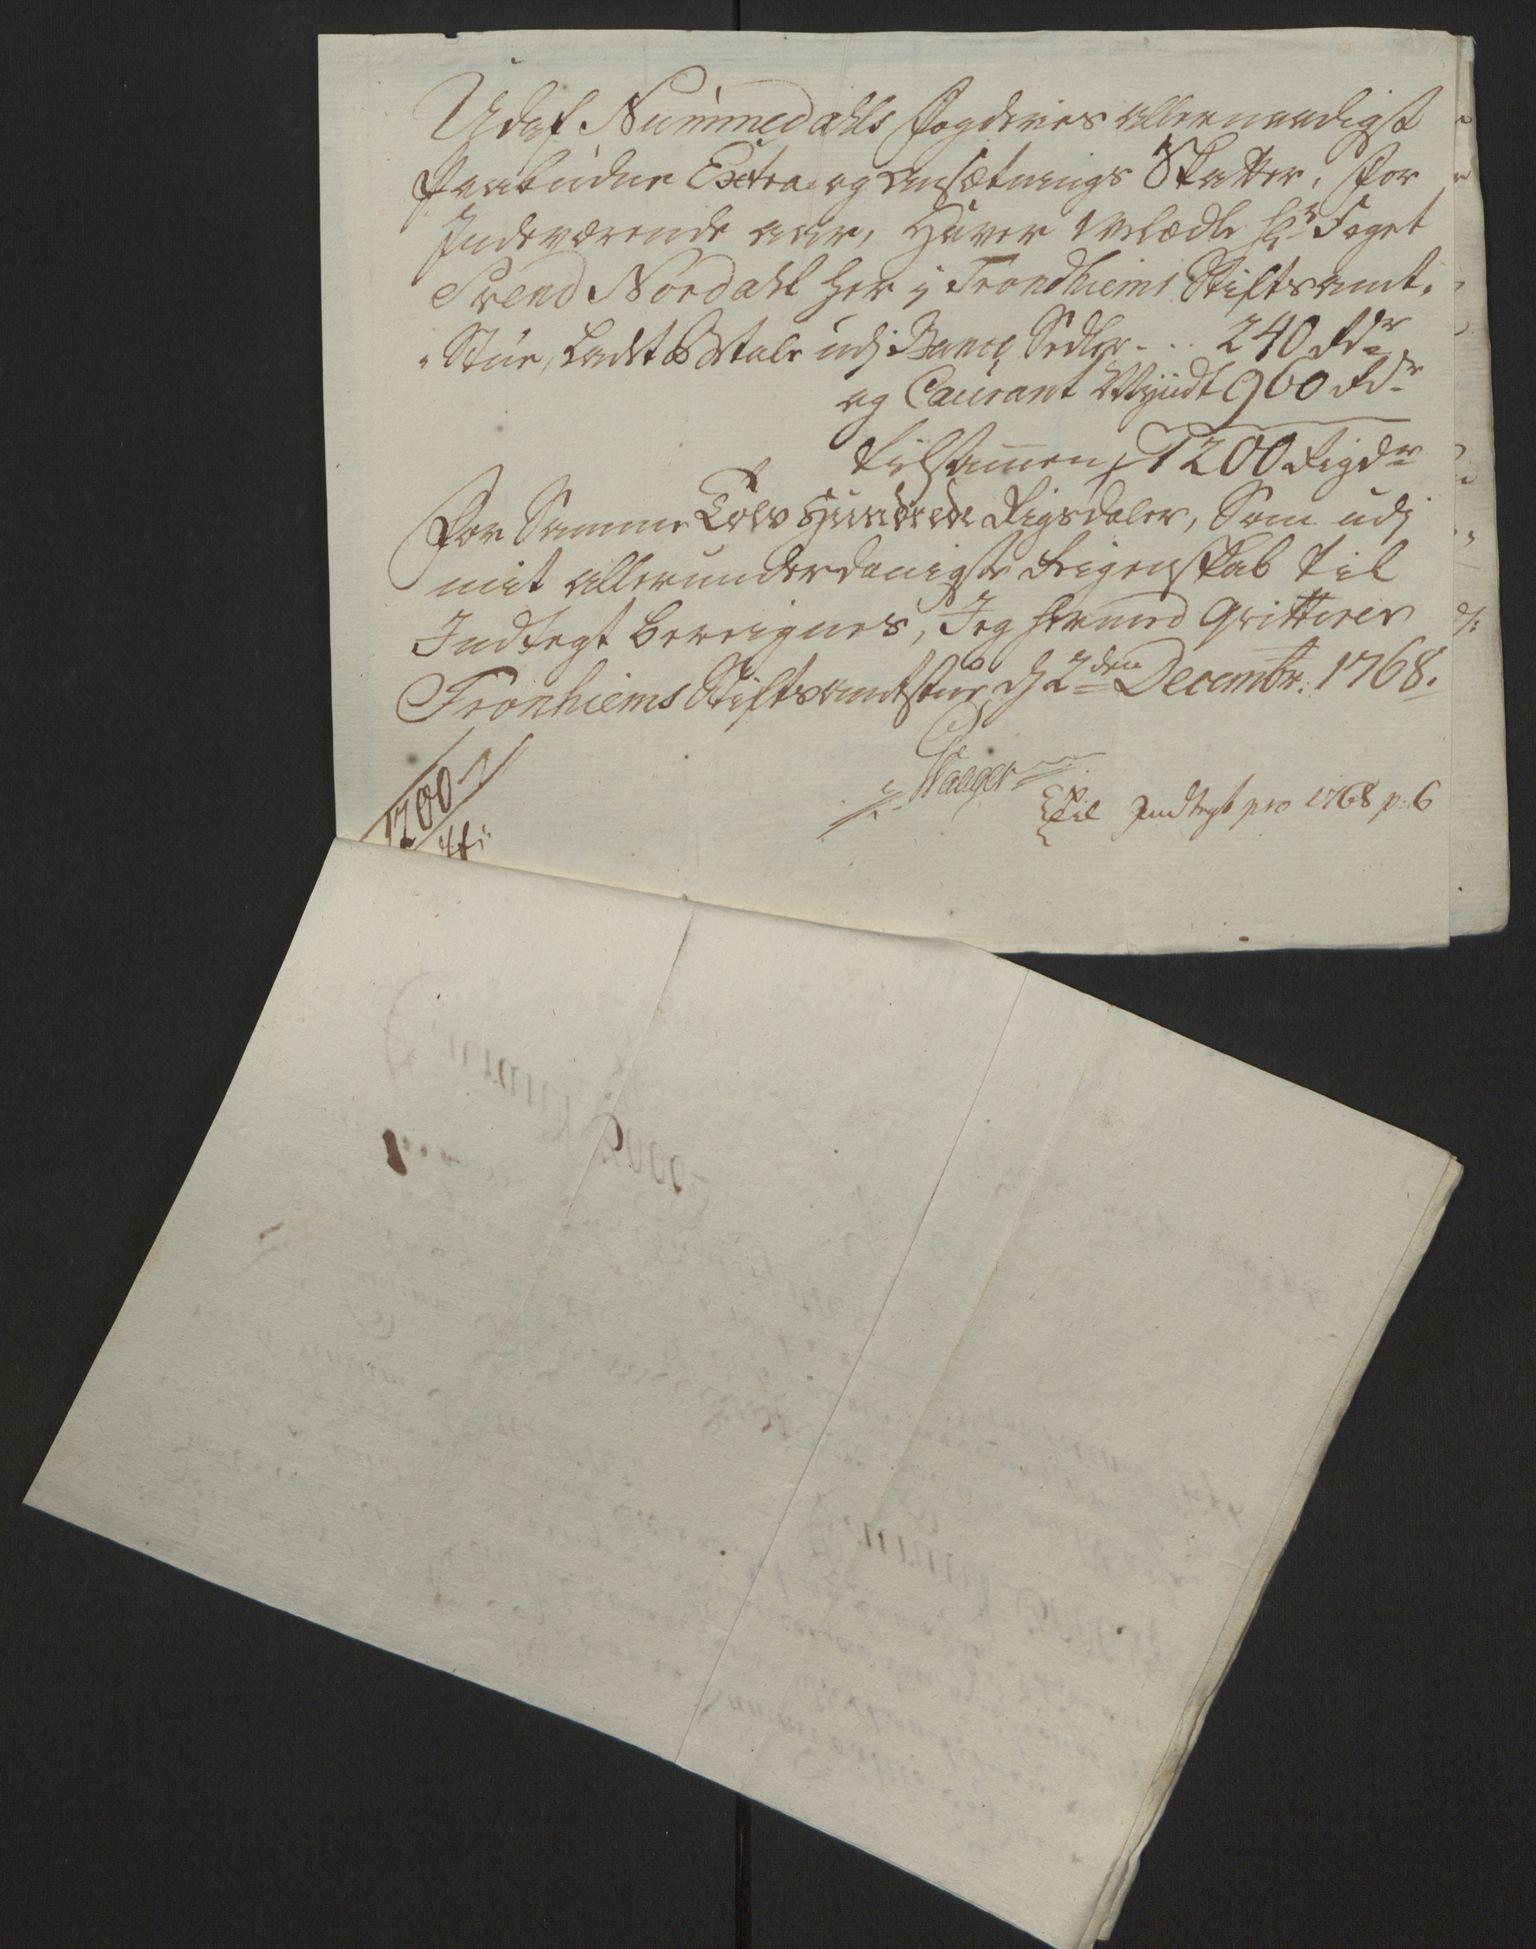 Udaf Nummedahls Fogderies allernaadigst
Paabudne Extra og Ansætnings Skatter, for
Indeværende aar, Haver Velædle Hr Foget
Svend Nordahl her i Trondhiems Stiftsamt-
Stue, ladet Betale udj Banco Sedler - . . 240 Rdr
og Courant Myndt 960 Rdr
tilsammen 1200 Rigdr
For Samme Tolv Hundrede Rigsdaler, Som udj
mit allerunderdanigste Reigenskab til
Indtegt bereignes, Jeg hermed Qvitterer
Tronhiems Stiftsamtstue d 2den Decembr. 1768.
Til Indtegt pro 1768 p. 6
1200